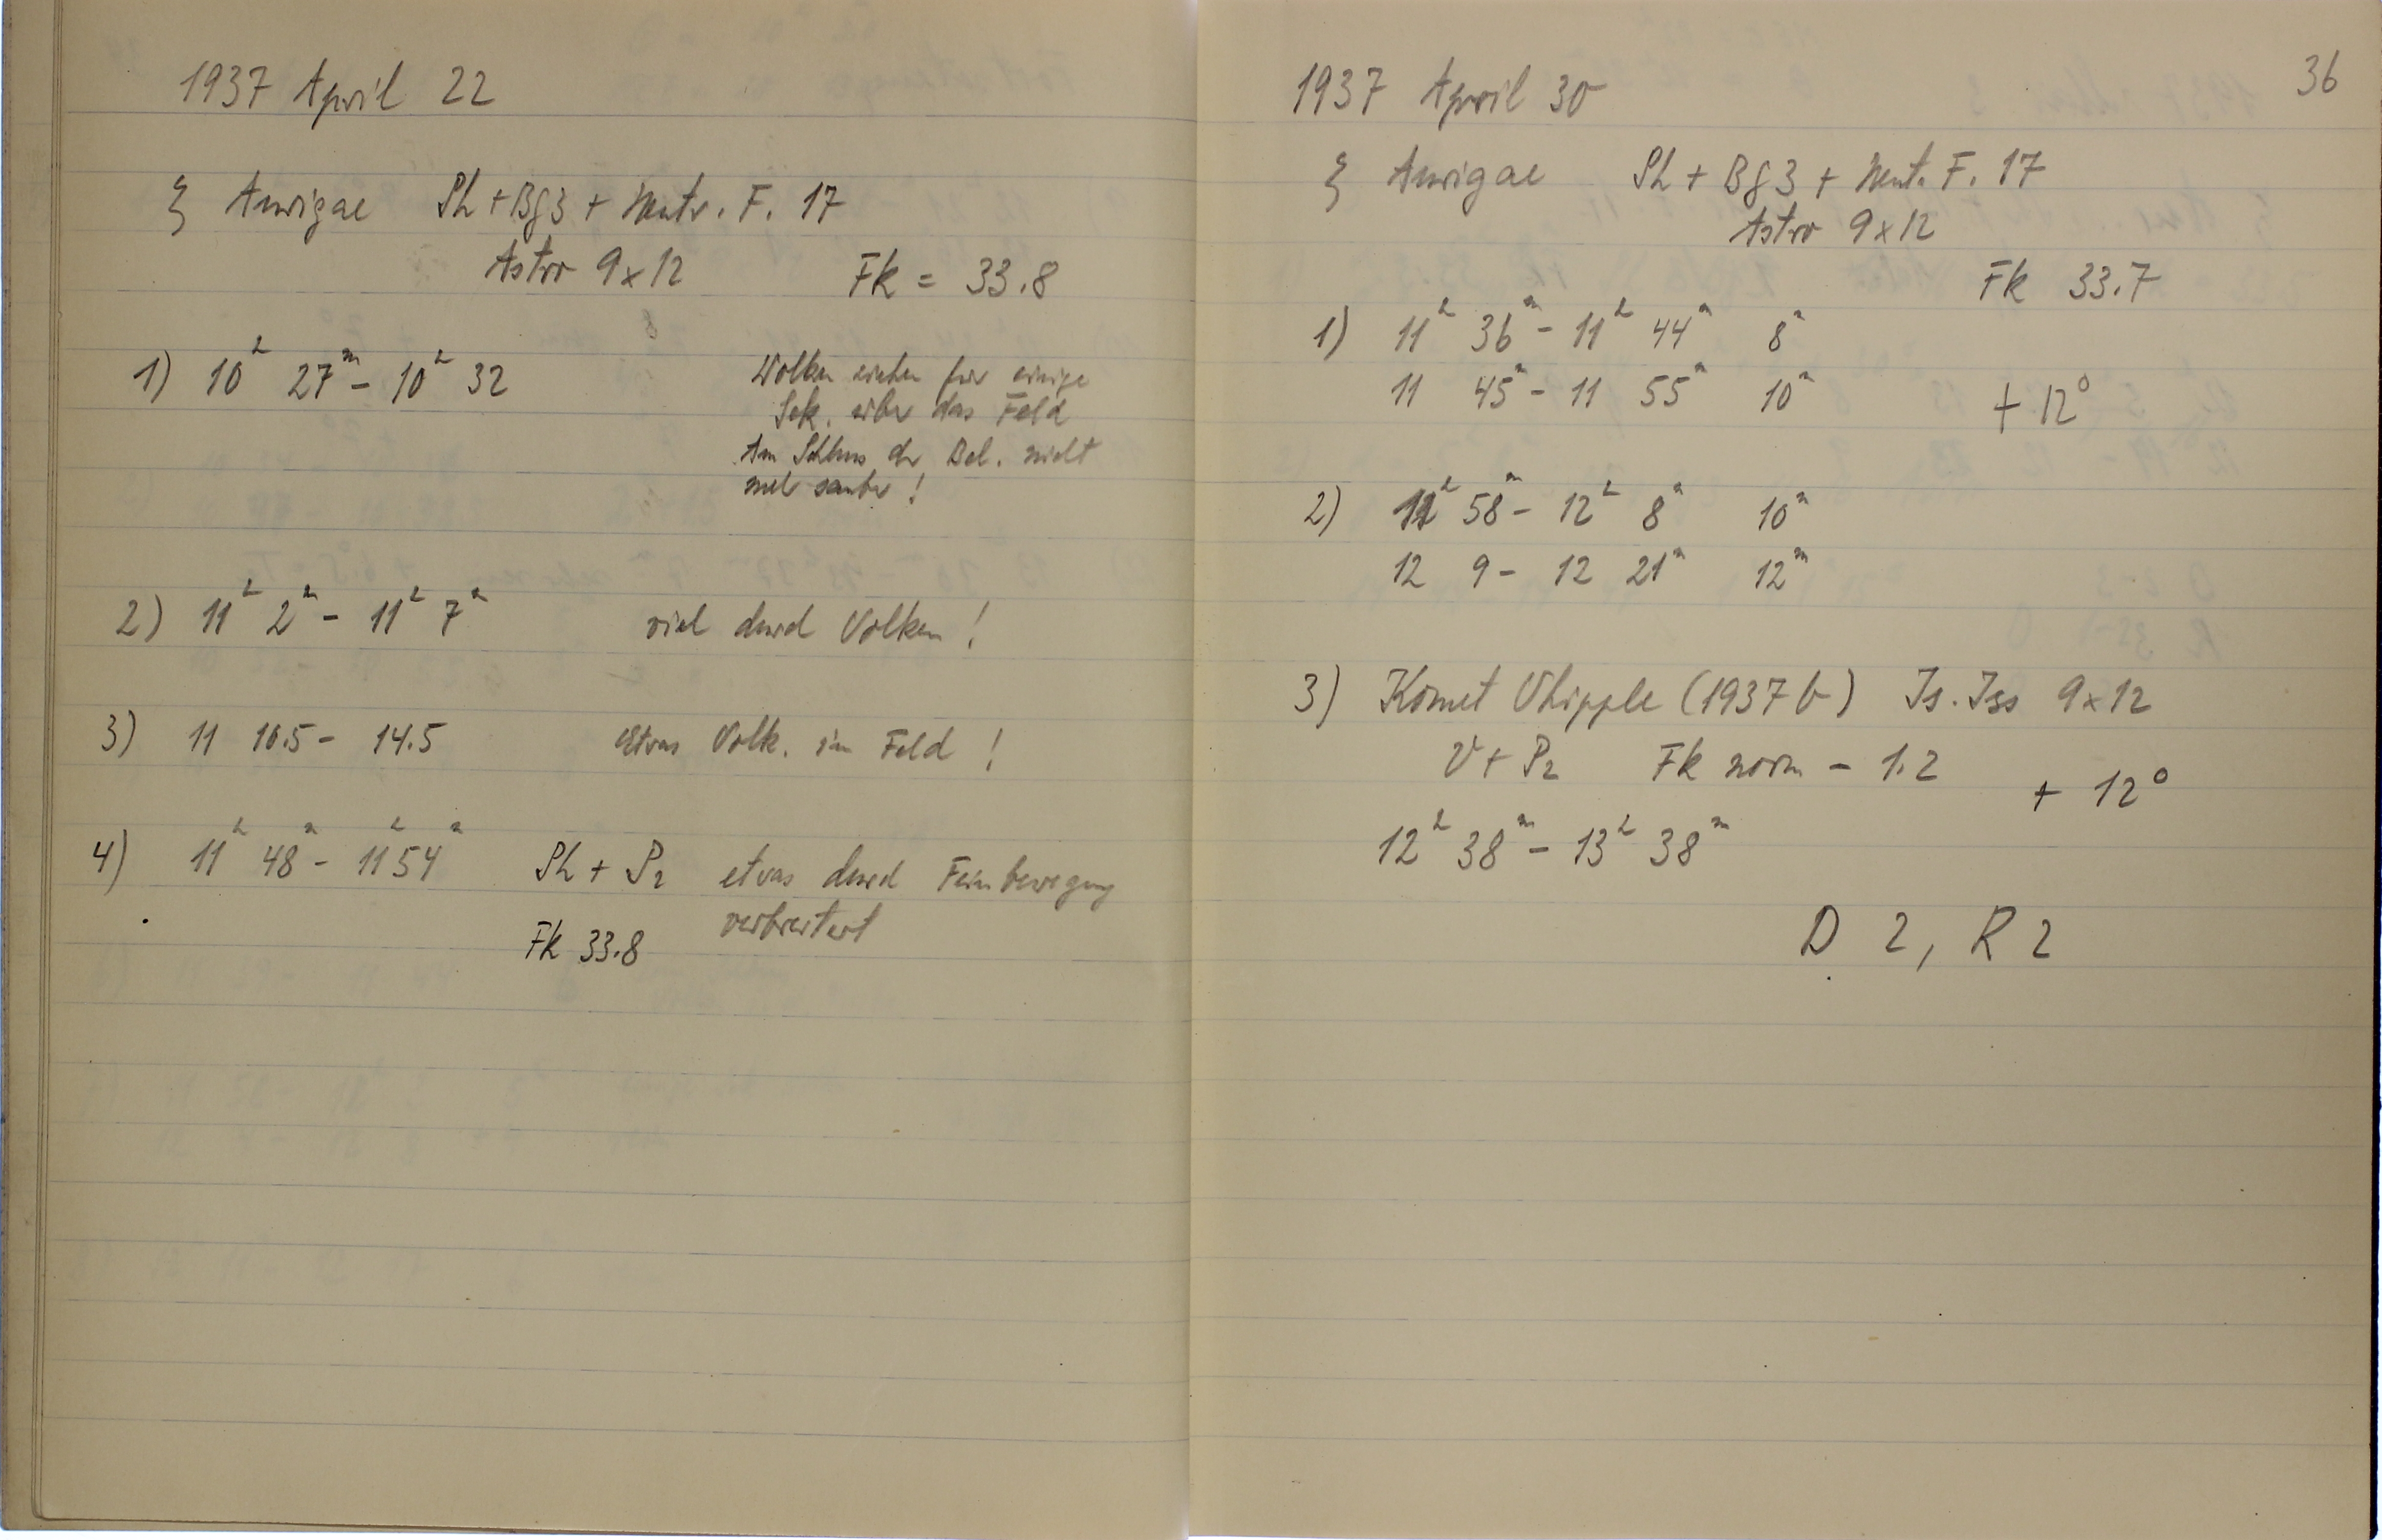 1937 April 22
ξ Aurigae Ph + Bg3 + Neutr. F. 17
Astro 9x12 Fk = 33.8
1) 10ʰ 27ᵐ - 10ʰ 32
Wolken ziehen für einige
Sek. über das Feld
Am Schluss der Bel. nicht
mehr sauber!
2) 11ʰ 2ᵐ - 11ʰ 7ᵐ viel durch Wolken!
3) 11 10.5 - 14.5 etwas Wolk. im Feld!
4) 11ʰ 48ᵐ - 11ʰ 54ᵐ Ph + P₂ etwas durch Feinbewegung
verbreitert
Fk 33.8
36
1937 April 30
ξ Aurigae Ph + Bg3 + Neut. F. 17
Astro 9x12
Fk 33.7
1) 11ʰ 36ᵐ - 11ʰ 44ᵐ 8ᵐ
11 45ᵐ - 11 55ᵐ 10ᵐ + 12°
2) 11ʰ 58ᵐ - 12ʰ 8ᵐ 10ᵐ
12 9 - 12 21ᵐ 12ᵐ
3) Komet Whipple (1937 b) Is. Iss 9x12
V + P₂ Fk norm - 1.2 + 12°
12ʰ 38ᵐ - 13ʰ 38ᵐ
D 2, R 2